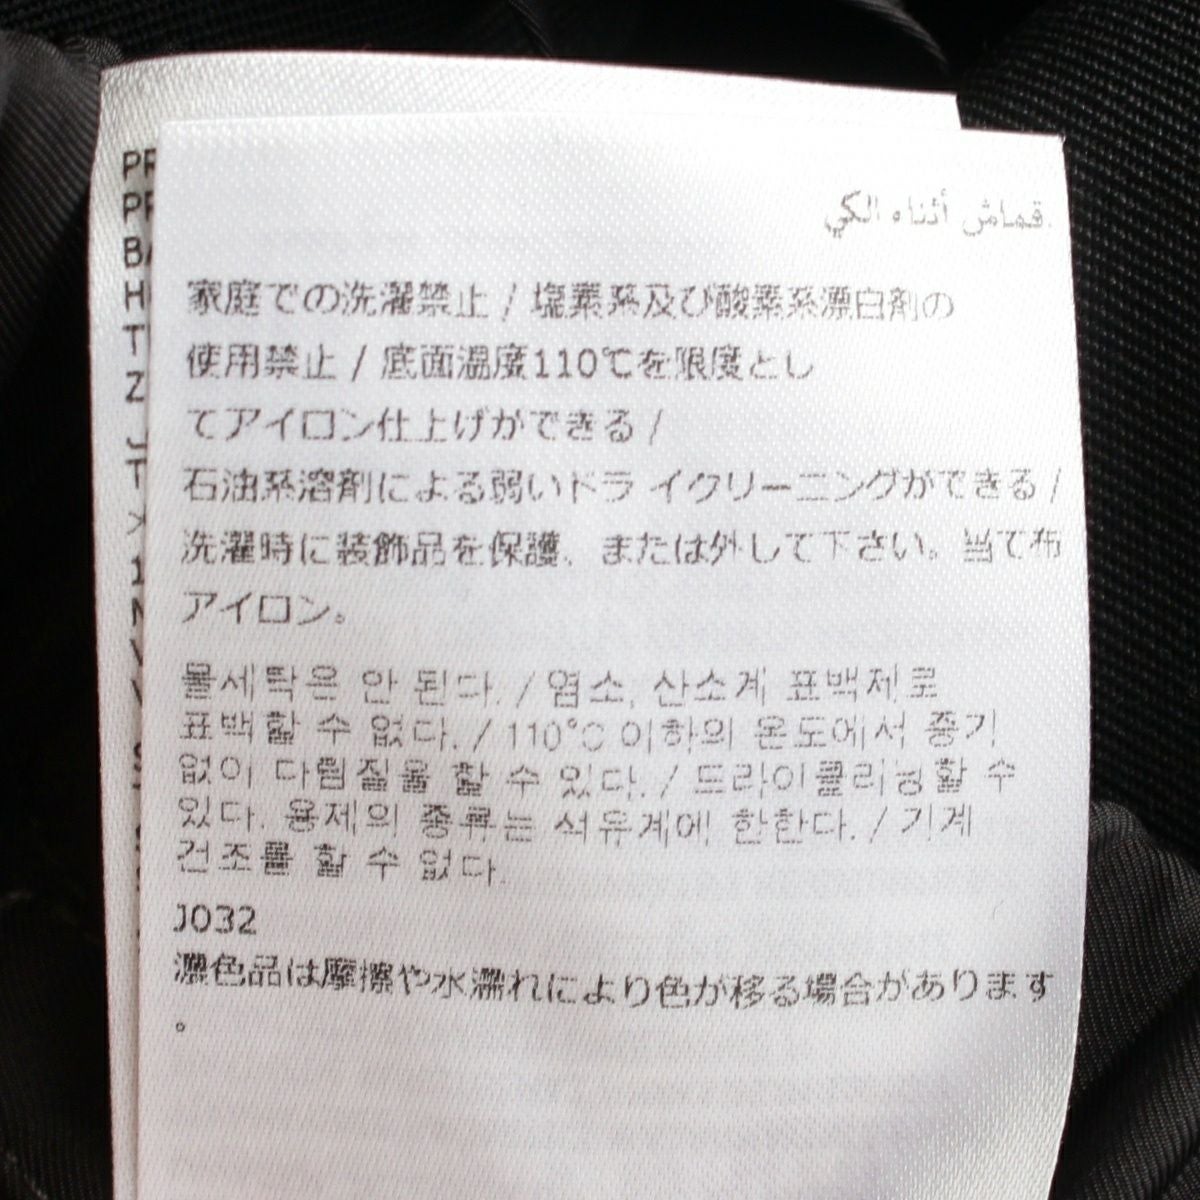 قماش أثناء الكي.
家庭での洗濯禁止 / 塩素系及び酸素系漂白剤の
使用禁止 / 底面温度110℃を限度とし
てアイロン仕上げができる /
石油系溶剤による弱いドラ イクリーニングができる /
洗濯時に装飾品を保護、または外して下さい。当て布
アイロン。
물세탁은 안 된다. / 염소, 산소계 표백제로
표백할 수 없다. / 110°C 이하의 온도에서 증기
없이 다림질을 할 수 있다. / 드라이클리닝할 수
있다. 용제의 종류는 석유계에 한한다. / 기계
건조를 할 수 없다.
J032
濃色品は摩擦や水濡れにより色が移る場合があります
。